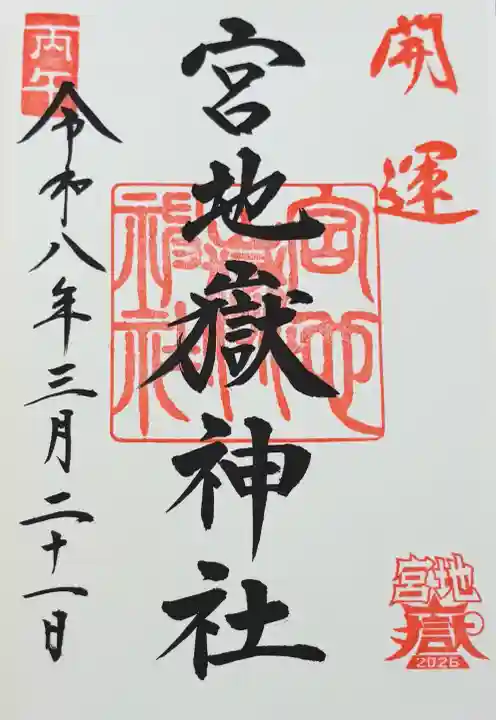 開運
宮地嶽神社
宮地
嶽
2026
丙午
令和八年三月二十一日